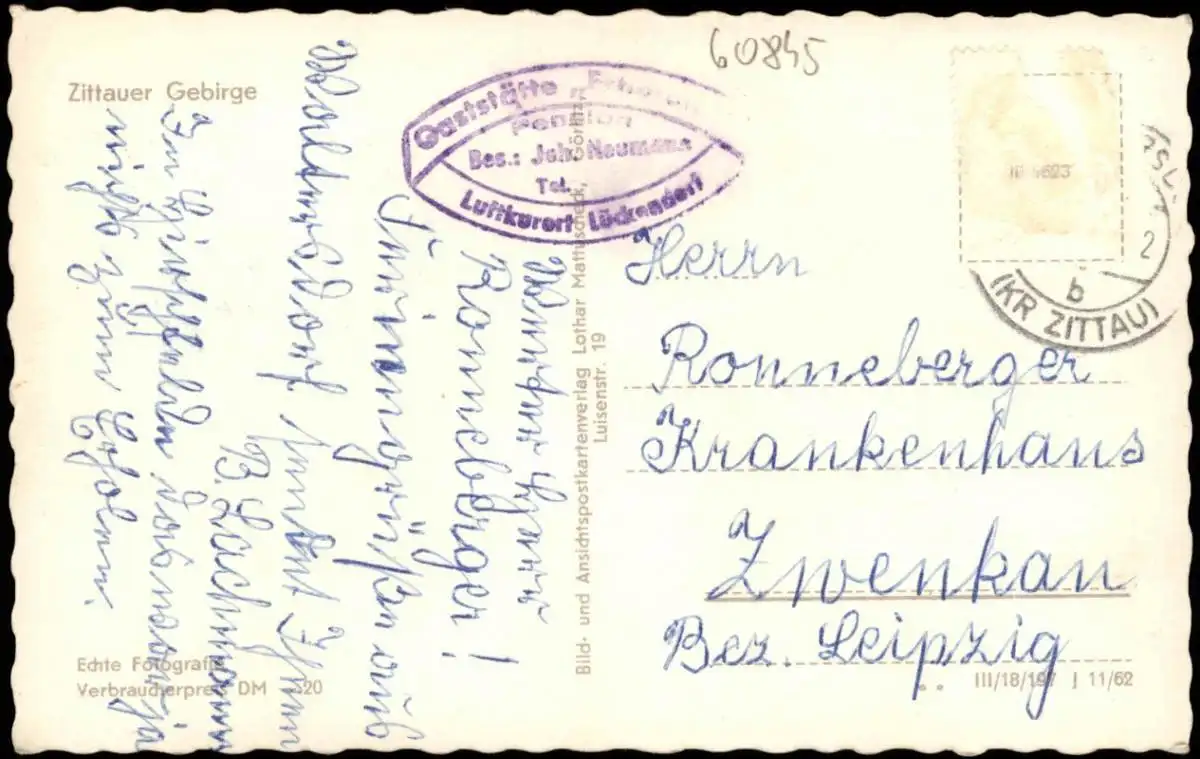 60845
Zittauer Gebirge
Gaststätte
Pension
Bes.: Joh. Neumann
Tel.
Luftkurort Lückendorf
(KR ZITTAU)
b
2
Werter Herr
Ronneberger!
Feriengrüße aus
Waltersdorf sendet Ihnen
B. Lachmann
In Hirschfelde das war ja
nichts zum Erholen.
Herrn
Ronneberger
Krankenhaus
Zwenkau
Bez. Leipzig
Bild- und Ansichtspostkartenverlag Lothar Mattuscheck, Görlitz,
Luisenstr. 19
Echte Fotografie
Verbraucherpreis DM 20
III/18/197 J 11/62